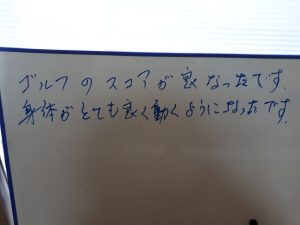 ゴルフのスコアが良なったです.
身体がとても良く動くようになったです.